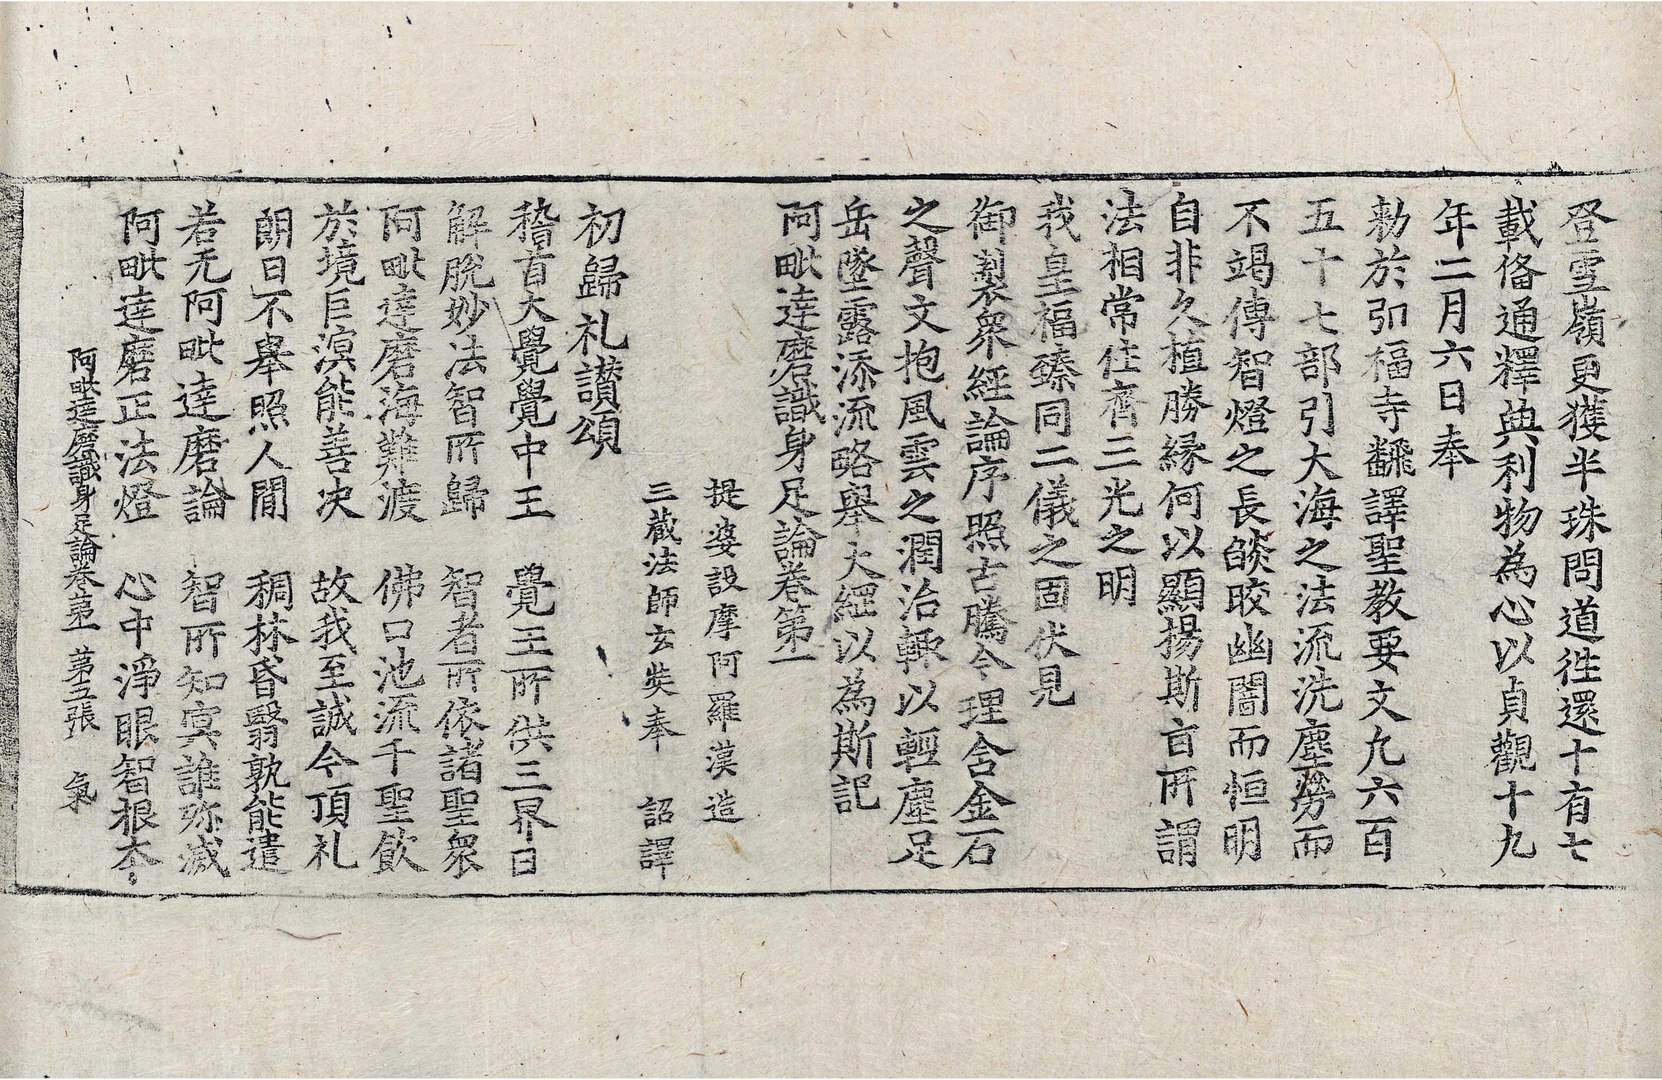 登雪嶺更獲半珠問道徃還十有七
載俻通釋典利物為心以貞觀十九
年二月六日奉
勑於弘福寺飜譯聖教要文凡六百
五十七部引大海之法流洗塵勞而
不竭傳智燈之長㷔皎幽闇而恒明
自非久植勝緣何以顯揚斯旨所謂
法相常住齊三光之明
我皇福臻同二儀之固伏見
御製衆經論序照古騰今理含金石
之聲文抱風雲之潤治輒以輕塵足
岳墜露添流略舉大經以為斯記
阿毗達磨識身足論卷第一
提婆設摩阿羅漢造
三藏法師玄奘奉 詔譯
初歸礼讃頌
稽首大覺覺中王 覺王所供三界日
解脫妙法智所歸 智者所依諸聖衆
阿毗達磨海難渡 佛口池流千聖飲
於境巨溟能善决 故我至誠今頂礼
朗日不舉照人閒 稠林昏翳孰能遣
若无阿毗達磨論 智所知冥誰殄滅
阿毗達磨正法燈 心中淨眼智根夲
阿毗達磨識身足論卷第一 第五張 氣